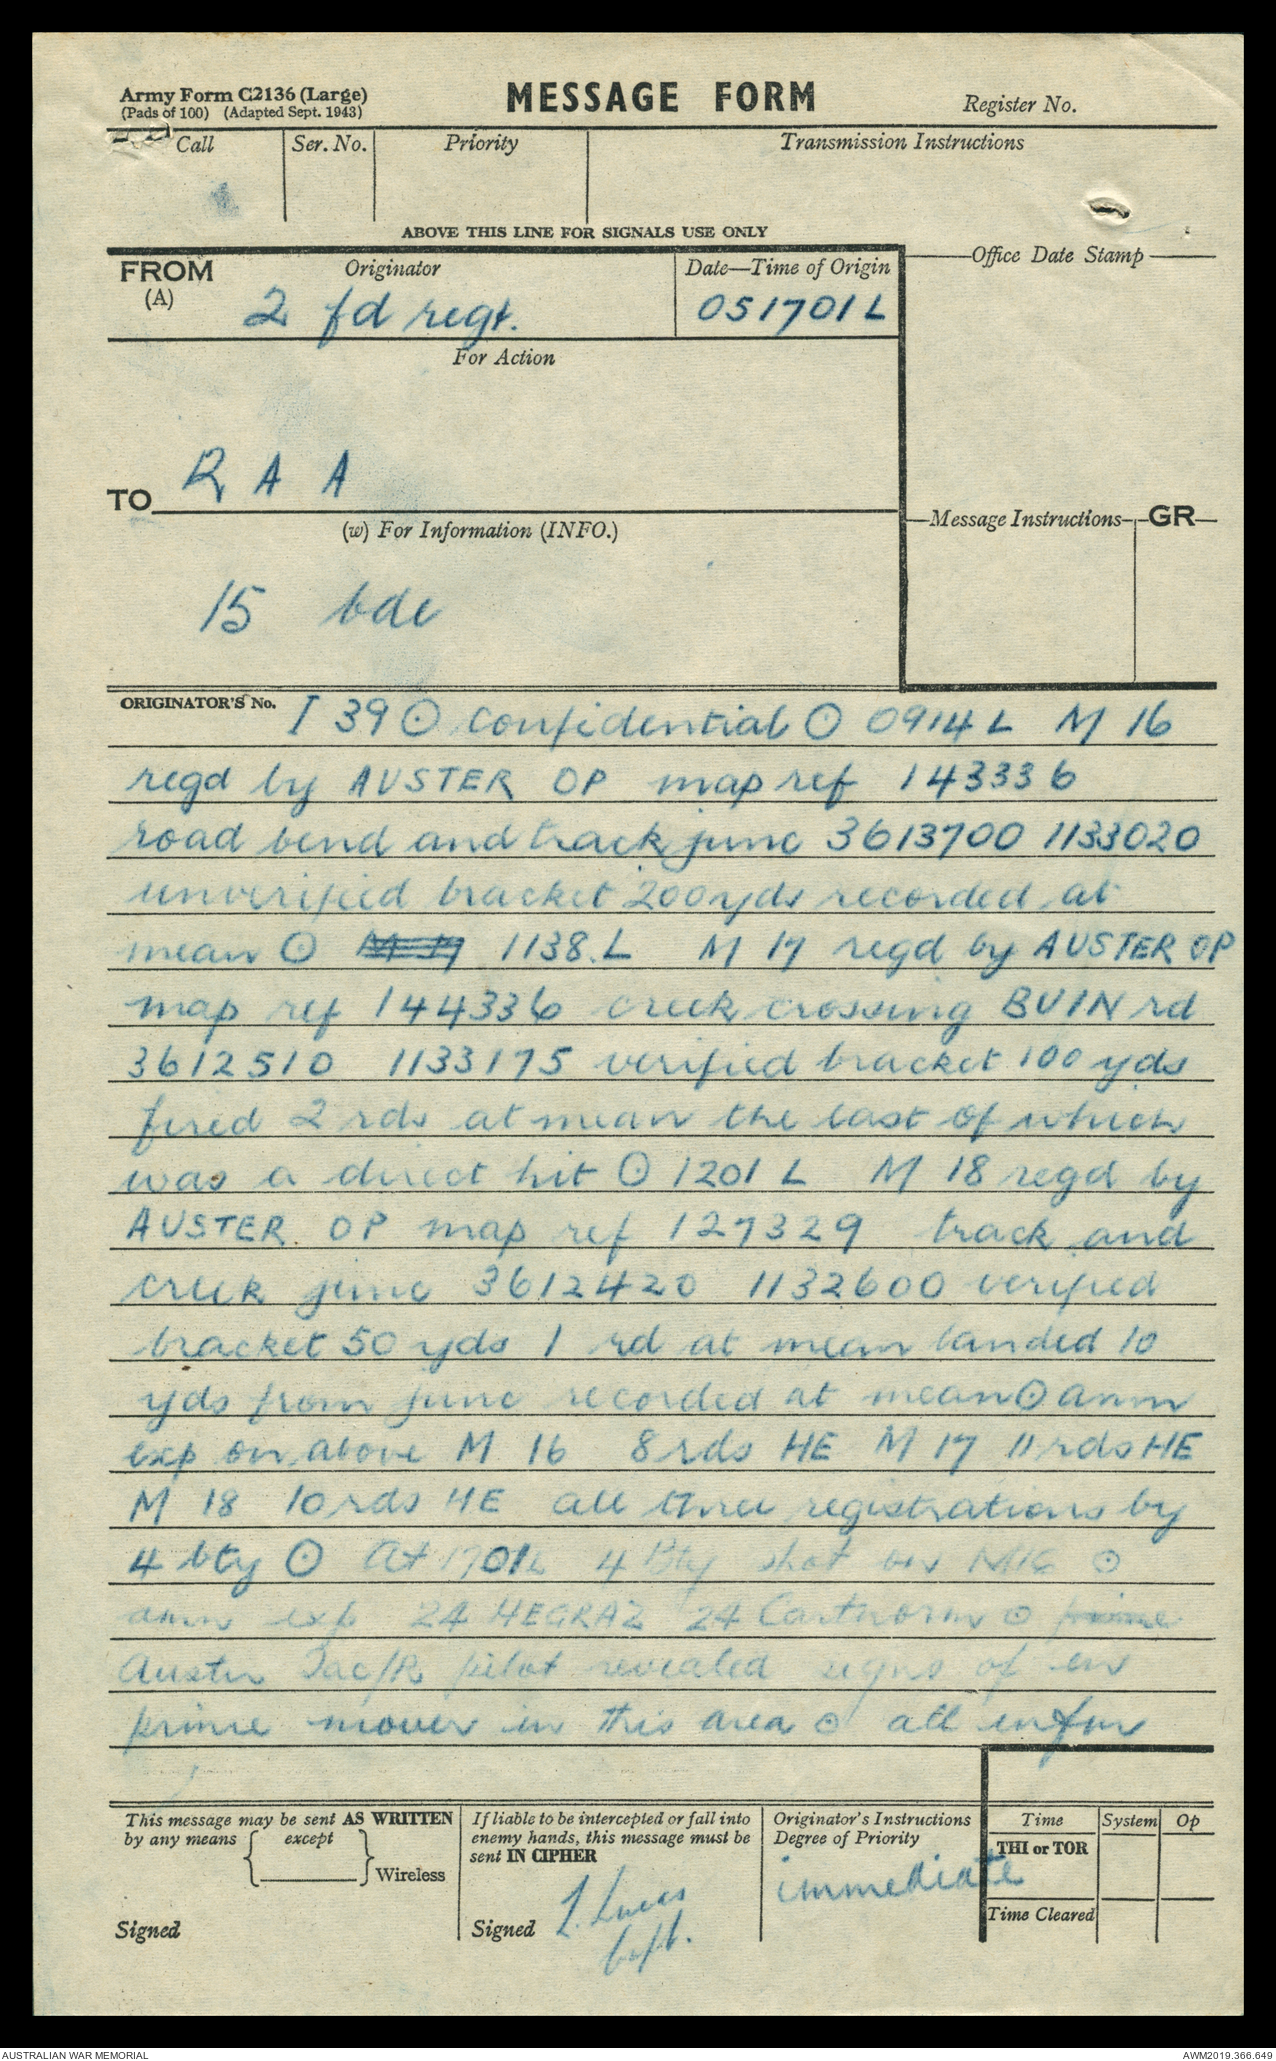 Army Form C2136 (Large)
(Pads of 100) (Adapted Sept. 1943)
MESSAGE FORM
Register No.
Call
Ser. No.
Priority
Transmission Instructions
ABOVE THIS LINE FOR SIGNALS USE ONLY
FROM
(A)
Originator
2 fd regt.
Date—Time of Origin
051701 L
Office Date Stamp
For Action
TO
R A A
(w) For Information (INFO.)
15 bde
Message Instructions
GR
ORIGINATOR'S No.
I 39 ⊙ confidential ⊙ 0914 L M 16
regd by AUSTER OP map ref 143336
road bend and track junc 3613700 1133020
unverified bracket 200 yds recorded at
mean ⊙ M 17 1138.L M 17 regd by AUSTER OP
map ref 144336 creek crossing BUIN rd
3612510 1133175 verified bracket 100 yds
fired 2 rds at mean the last of which
was a direct hit ⊙ 1201 L M 18 regd by
AUSTER OP map ref 127329 track and
creek junc 3612420 1132600 verified
bracket 50 yds 1 rd at mean landed 10
yds from junc recorded at mean ⊙ amm
exp on above M 16 8 rds HE M 17 11 rds HE
M 18 10 rds HE all three registrations by
4 bty ⊙ At 1701L 4 Bty shot on M16 ⊙
amm exp 24 HEGRAZ 24 Cartnorm ⊙ prime
Auster Tac/R pilot revealed signs of en
prime mover in this area ⊙ all infm
This message may be sent AS WRITTEN
by any means
except
Wireless
Signed
If liable to be intercepted or fall into
enemy hands, this message must be
sent IN CIPHER
Signed
L. Lucas
Capt.
Originator's Instructions
Degree of Priority
immediate
Time
System
Op
THI or TOR
Time Cleared
AUSTRALIAN WAR MEMORIAL
AWM2019.366.649